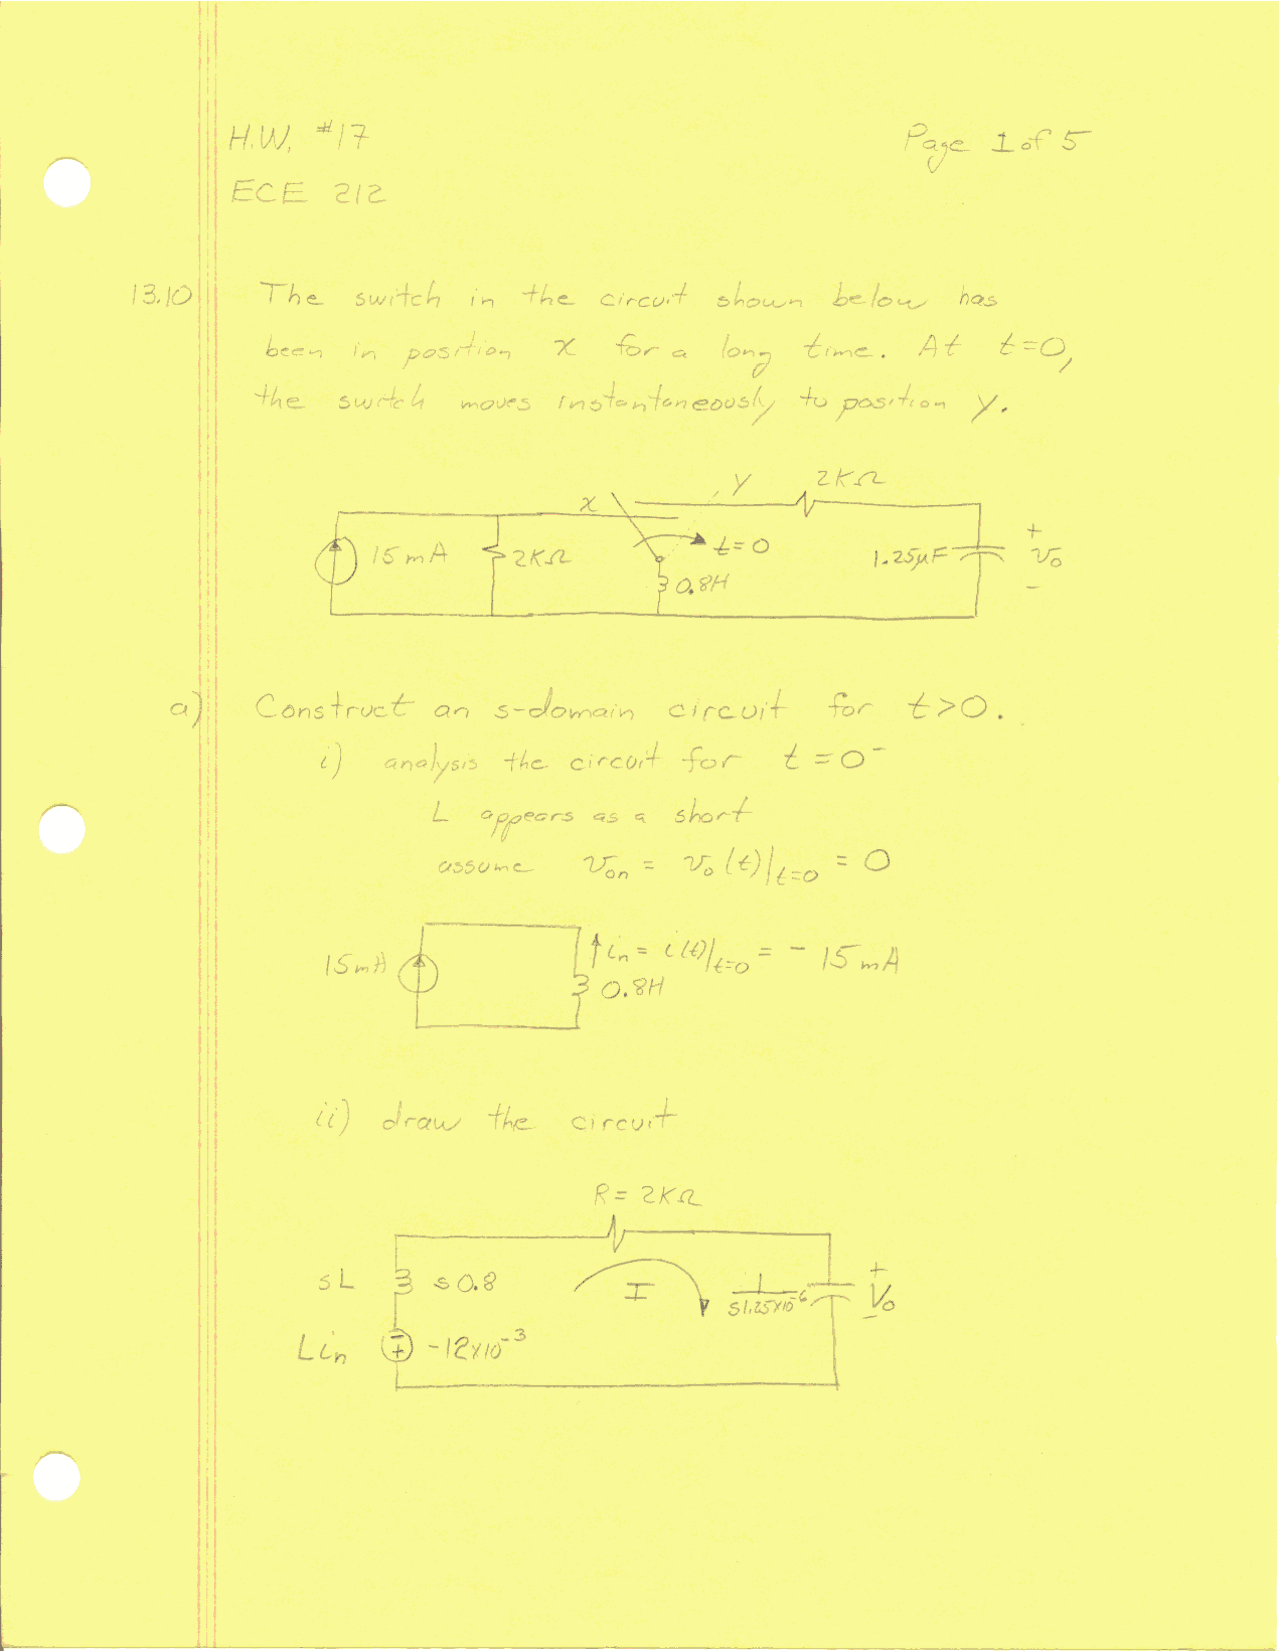 H.W. #17
Page 1 of 5
ECE 212
13.10 The switch in the circuit shown below has
been in position x for a long time. At t=0,
the switch moves instantaneously to position y.
x
y
2KΩ
15mA
2KΩ
t=0
0.8H
1.25µF
+
vo
-
a) Construct an s-domain circuit for t>0.
i) analysis the circuit for t=0⁻
L appears as a short
assume von = vo(t)|t=0 = 0
15mA
in = i(t)|t=0 = - 15mA
0.8H
ii) draw the circuit
R= 2KΩ
sL s0.8
I
1/s1.25x10⁻⁶
+
Vo
-
Lin - + -12x10⁻³